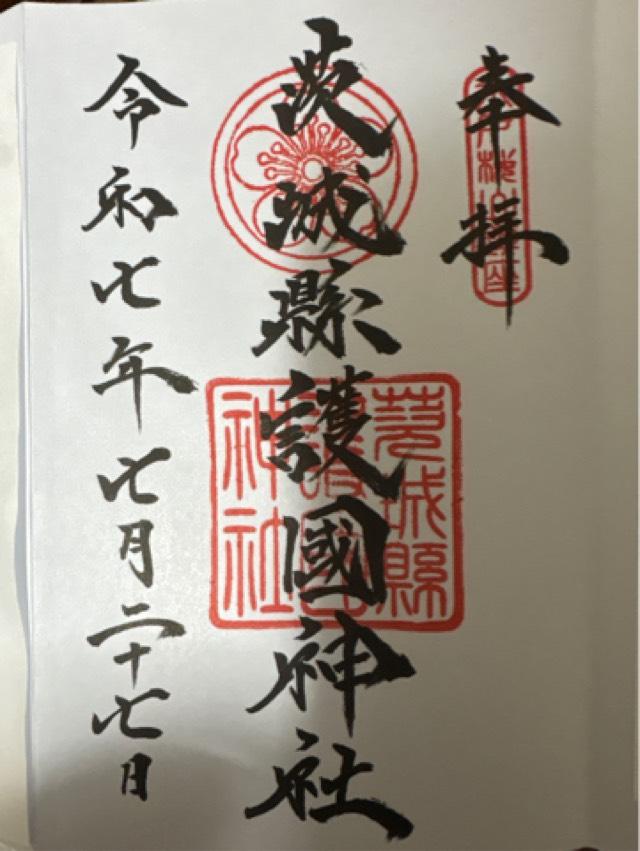 奉拝
茨城縣護國神社
茨城縣
護國
神社
令和七年七月二十七日